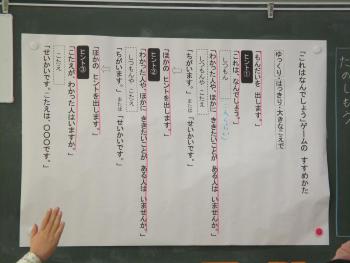 「これはなんでしょう」ゲームの すすめかた
ゆっくり・はっきり・大きなこえで
「もんだいを 出します。」
ヒント①
「これは、なんでしょう。」
しつもん
「わかった人や、ほかに ききたいことが ある人は いませんか。」
しつもんや こたえ
「ちがいます。」 または 「せいかいです。」
「ほかの ヒントを出します。」
ヒント②
「わかった人や、ほかに ききたいことが ある人は いませんか。」
しつもんや こたえ
「ちがいます。」 または 「せいかいです。」
「ほかの ヒントを出します。」
ヒント③
「こたえが、わかった人はいますか。」
こたえ
「せいかいです。こたえは、〇〇〇です。」